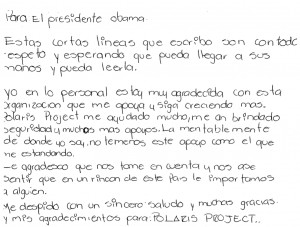 Para El presidente obama.
Estas cortas lineas que escribo son con todo
respeto y esperando que pueda llegar a sus
manos y pueda leerla.
yo en lo personal estoy muy agradecida con esta
organizacion que me apoya y siga creciendo mas.
Polaris Project me ayudado mucho, me an brindado
seguridad y muchos mas apoyos. La mentablemente
de donde yo soy, no tenemos este apoyo como el que
me estandando.
Le agradesco que nos tome en cuenta y nos ase
sentir que en un rincon de este pais le importamos
a alguien.
Me despido con un sincero saludo y muchas gracias
y mis agradecimientos para: POLARIS PROJECT..